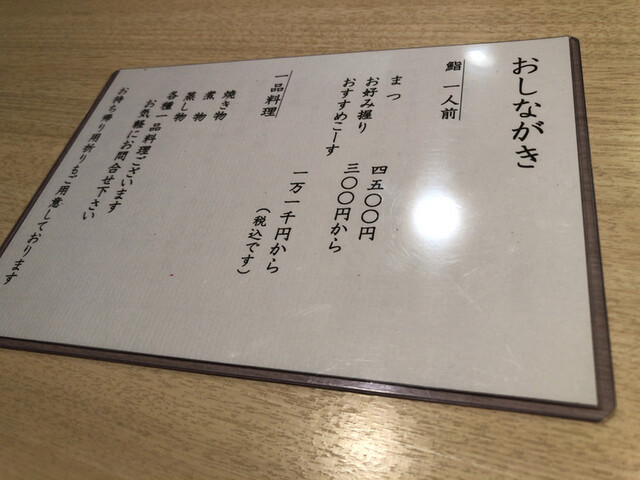 おしながき
鮨 一人前
まつ 四五〇〇円
お好み握り 三〇〇円から
おすすめこーす 一万一千円から
(税込です)
一品料理
焼き物
煮物
蒸し物
各種一品料理ございます
お気軽にお問合せ下さい
お持ち帰り用折りもご用意しております